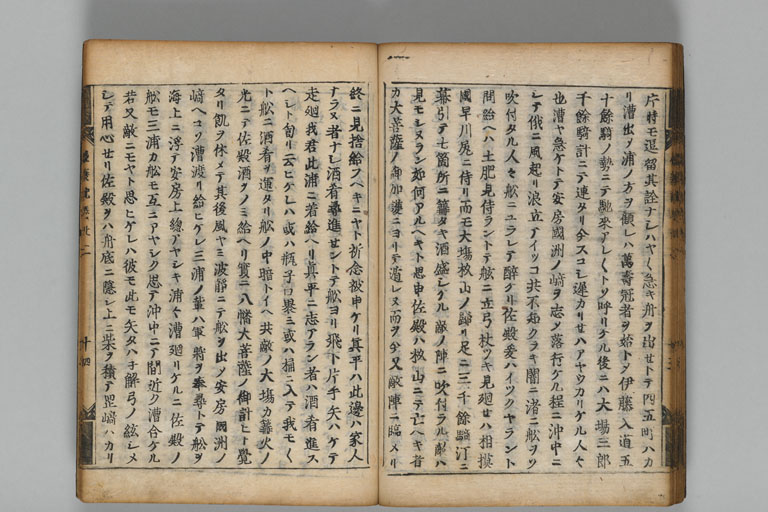 片時モ逗留其詮ナシハヤ〱急キ舟ヲ出セトテ四五町ハカ
リ漕出ツ浦ノ方ヲ顧レハ萬壽冠者ヲ始トメ伊藤入道五
十餘騎ノ勢ニテ馳来アレ〱トソ呼リケル後ニハ大場三郎
千餘騎計ニテ連タリ今スコシ遅カリセハアヤウカリケル人々
也漕ヤ急ケトテ安房國洲ノ﨑ヲ志ツ落行ケル程ニ沖中ニ
シテ俄ニ風起リ浪立テイツコ共不知クラキ闇ニ渚ニ舩ヲソ
吹付タル人々舩ニユラレテ醉ケリ佐殿爰ハイツクヤラント
問給ヘハ土肥見侍ラントテ舷ニ立弓杖ツキ見廻セハ相摸
國早川尻ニ侍リ而モ大塲杉山ノ歸リ足ニ三千餘騎汀ニ
幕引テ七箇所ニ篝タキ酒盛シケル敵ノ陣ニ吹付ラル敵ハ
見モシヌラン如何アルヘキト思申佐殿ハ杉山ニテ亡ヘキ者
カ大菩薩ノ御加護ニヨリテ遁レヌ而ヲ今又敵陣ニ臨メリ
終ニ見捨給フヘキニヤト祈念被申ケリ真平ハ此邊ハ家人
ナラヌ者ナシ酒肴尋進セントテ舩ヨリ飛下片手矢ハケテ
走廻我君此浦ニ著給ヘリ真平ニ志アラン者ハ酒肴進ス
ヘシト云ヒケレハ或ハ瓶子口裹三或ハ桶ニ入テ我モ〱
ト舩ニ酒肴ヲ運タリ舩ノ中暗トイヘ共敵ノ大塲カ篝火ノ
光ニテ佐殿酒ノミ給ヘリ實ニ八幡大菩薩ノ御計ヒト覺
タリ飢ヲ休メテ其後風ヤミ波靜ニテ舩ヲ出ツ安房國洲ノ
﨑ヘコソ漕渡リ給ヒケレ三浦ノ輩ハ軍將ヲ奉尋トテ舩ヲ
海上ニ浮テ安房上總アヤシキ浦々漕廻リケルニ佐殿ノ
舩モ三浦カ舩モ互ニアヤシク思テ沖中ニテ間近ク漕合ケル
若又敵ニモヤト思ヒケレハ彼モ此モ矢タハ子解弓ノ絃シメ
シテ用心セリ佐殿ヲハ舟底ニ隠シ上ニ柴ヲ積テ岡﨑ハカリ
十四